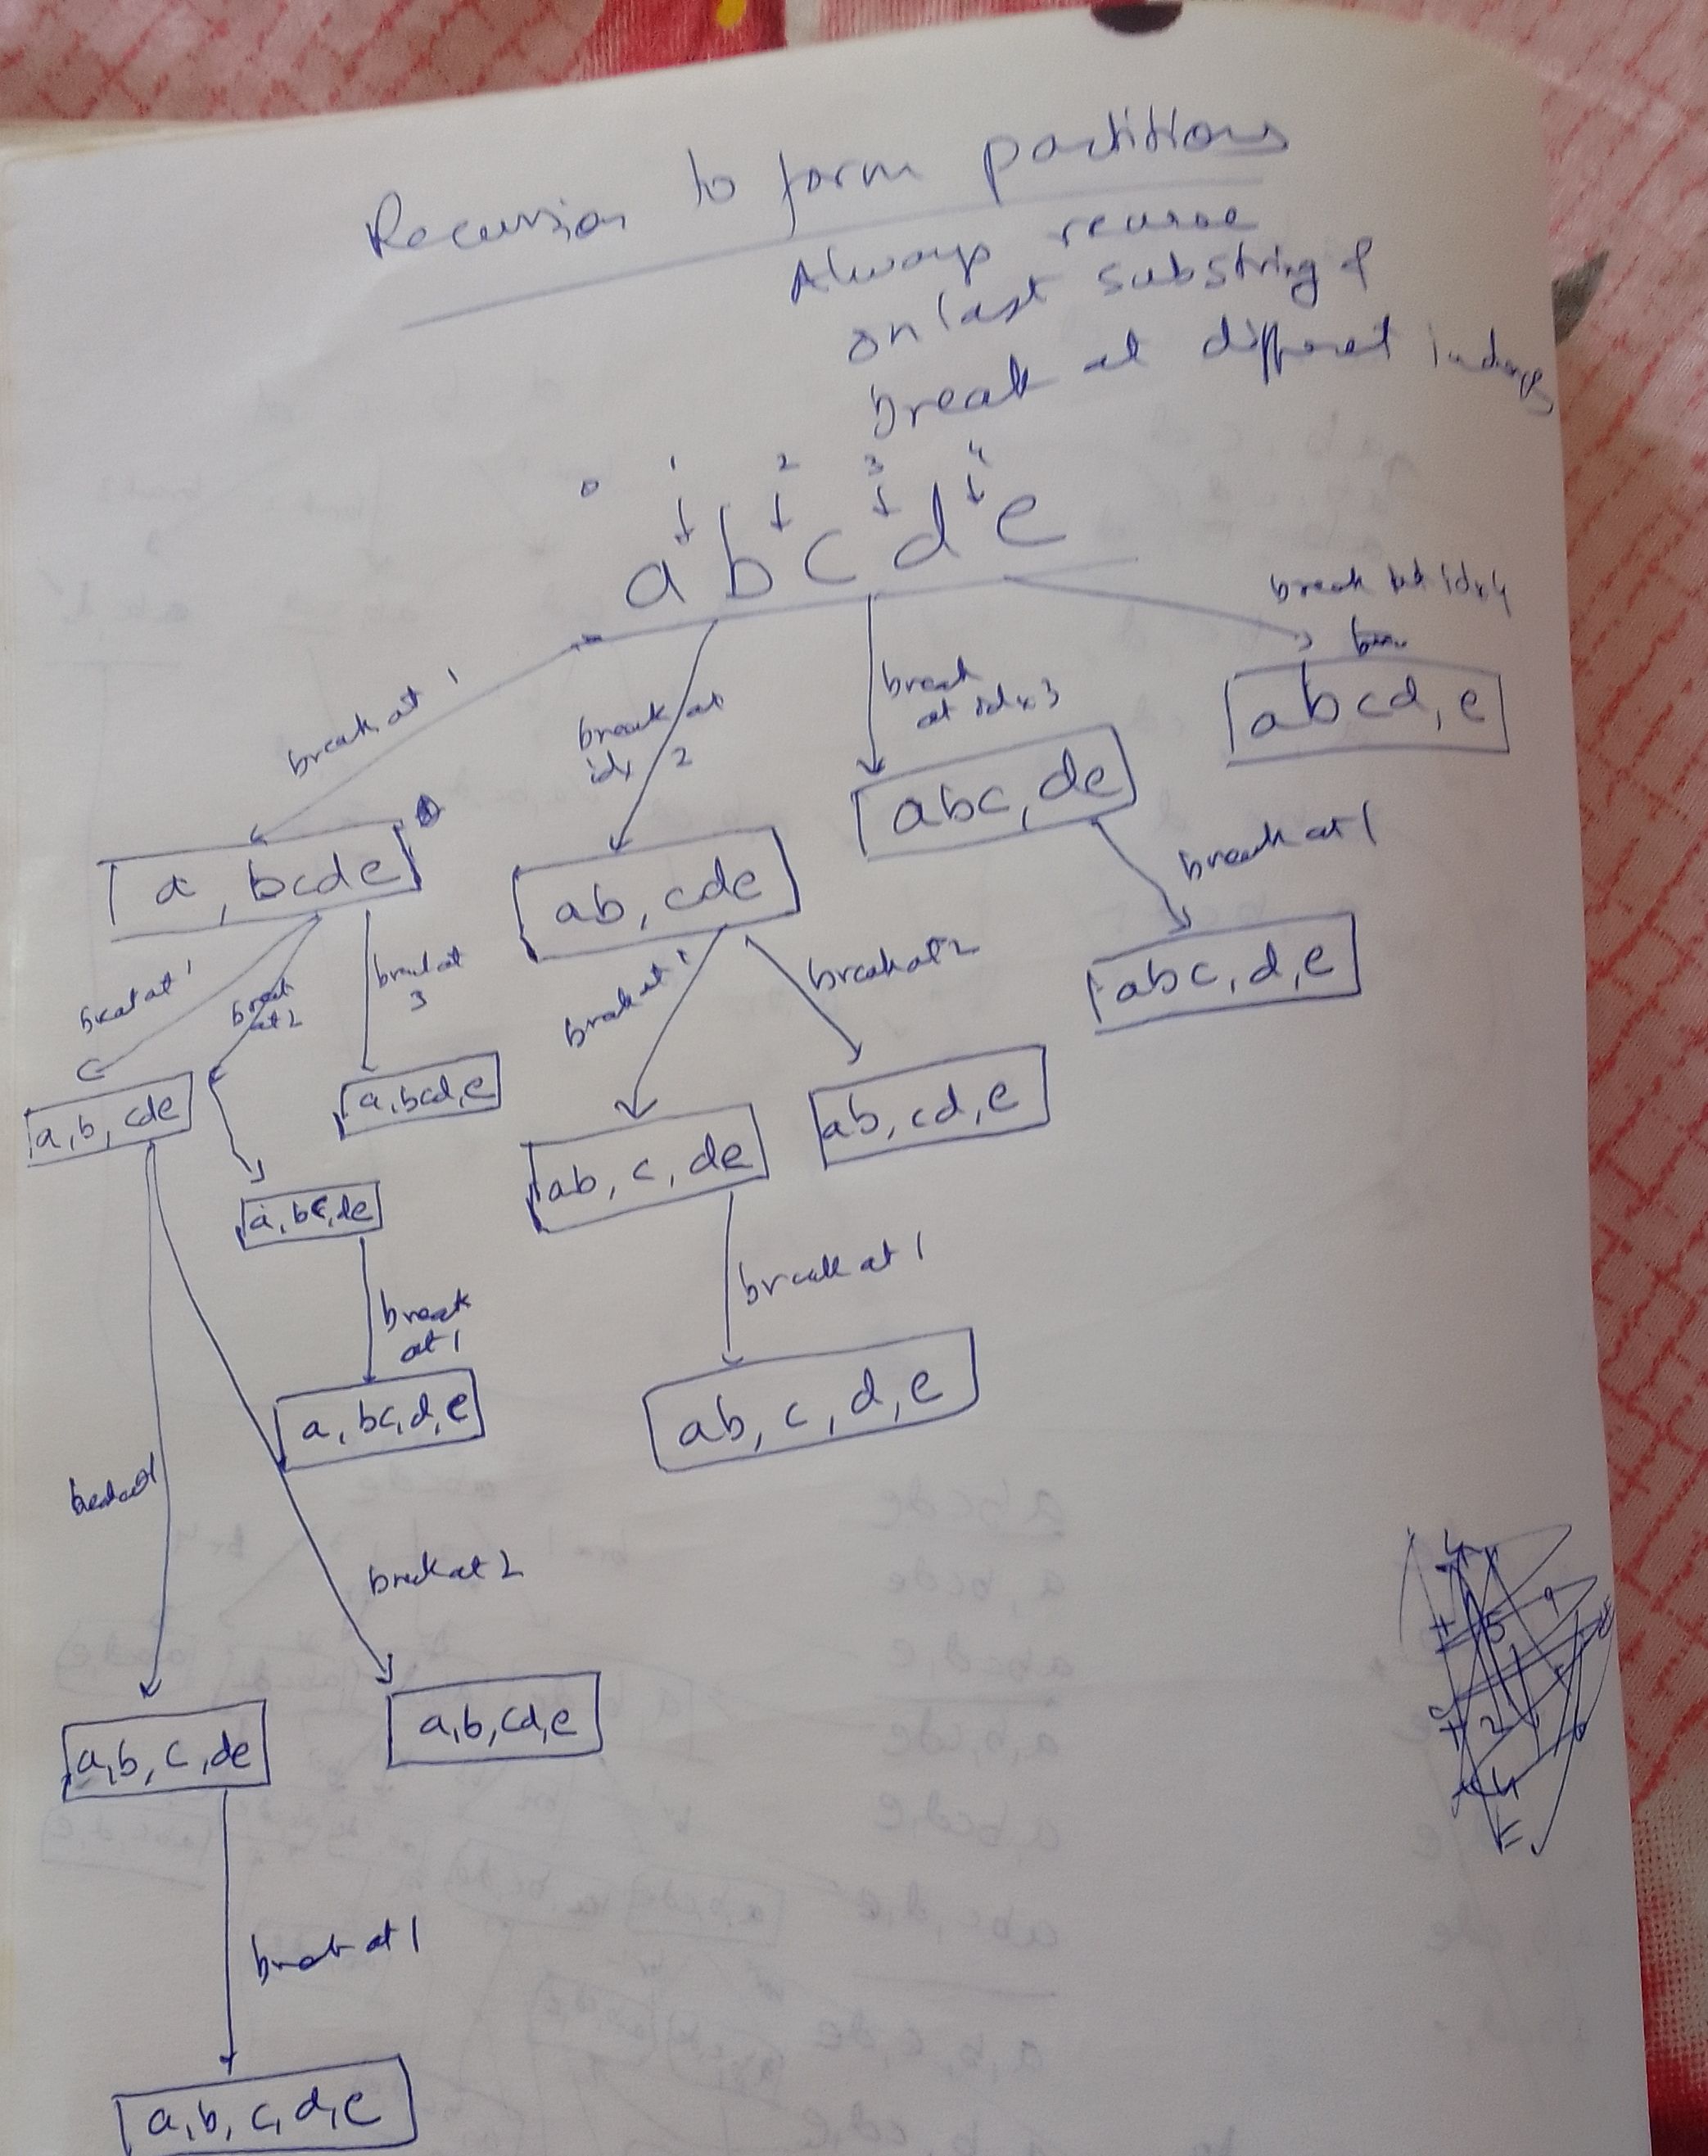 Recursion to form partitions
Always recurse
on last substring &
break at different indexes
0 1 2 3 4
a b c d e
break at idx 4
break at 1
break at
idx 2
break
at idx 3
abcd, e
abc, de
a, bcde
ab, cde
break at 1
abc, d, e
break at 1
break
at 2
break at
3
break at 1
break at 2
a, b, cde
a, bcd, e
ab, c, de
ab, cd, e
a, bc, de
break
at 1
break at 1
a, bc, d, e
ab, c, d, e
break at 1
break at 2
a, b, c, de
a, b, cd, e
break at 1
a, b, c, d, e